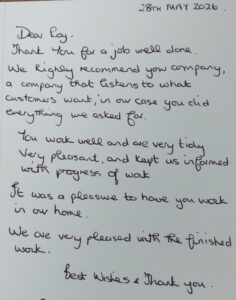 28TH MAY 2026.
Dear Ray.
Thank You for a job well done.
We highly recommend you company,
a company that listens to what
customers want, in our case you did
everything we asked for.
You work well and are very tidy
Very pleasant, and kept us informed
with progress of work
It was a pleasure to have you work
in our home.
We are very pleased with the finished
work.
Best Wishes & Thank you.